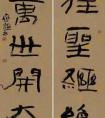 往聖繼絕
萬世開太